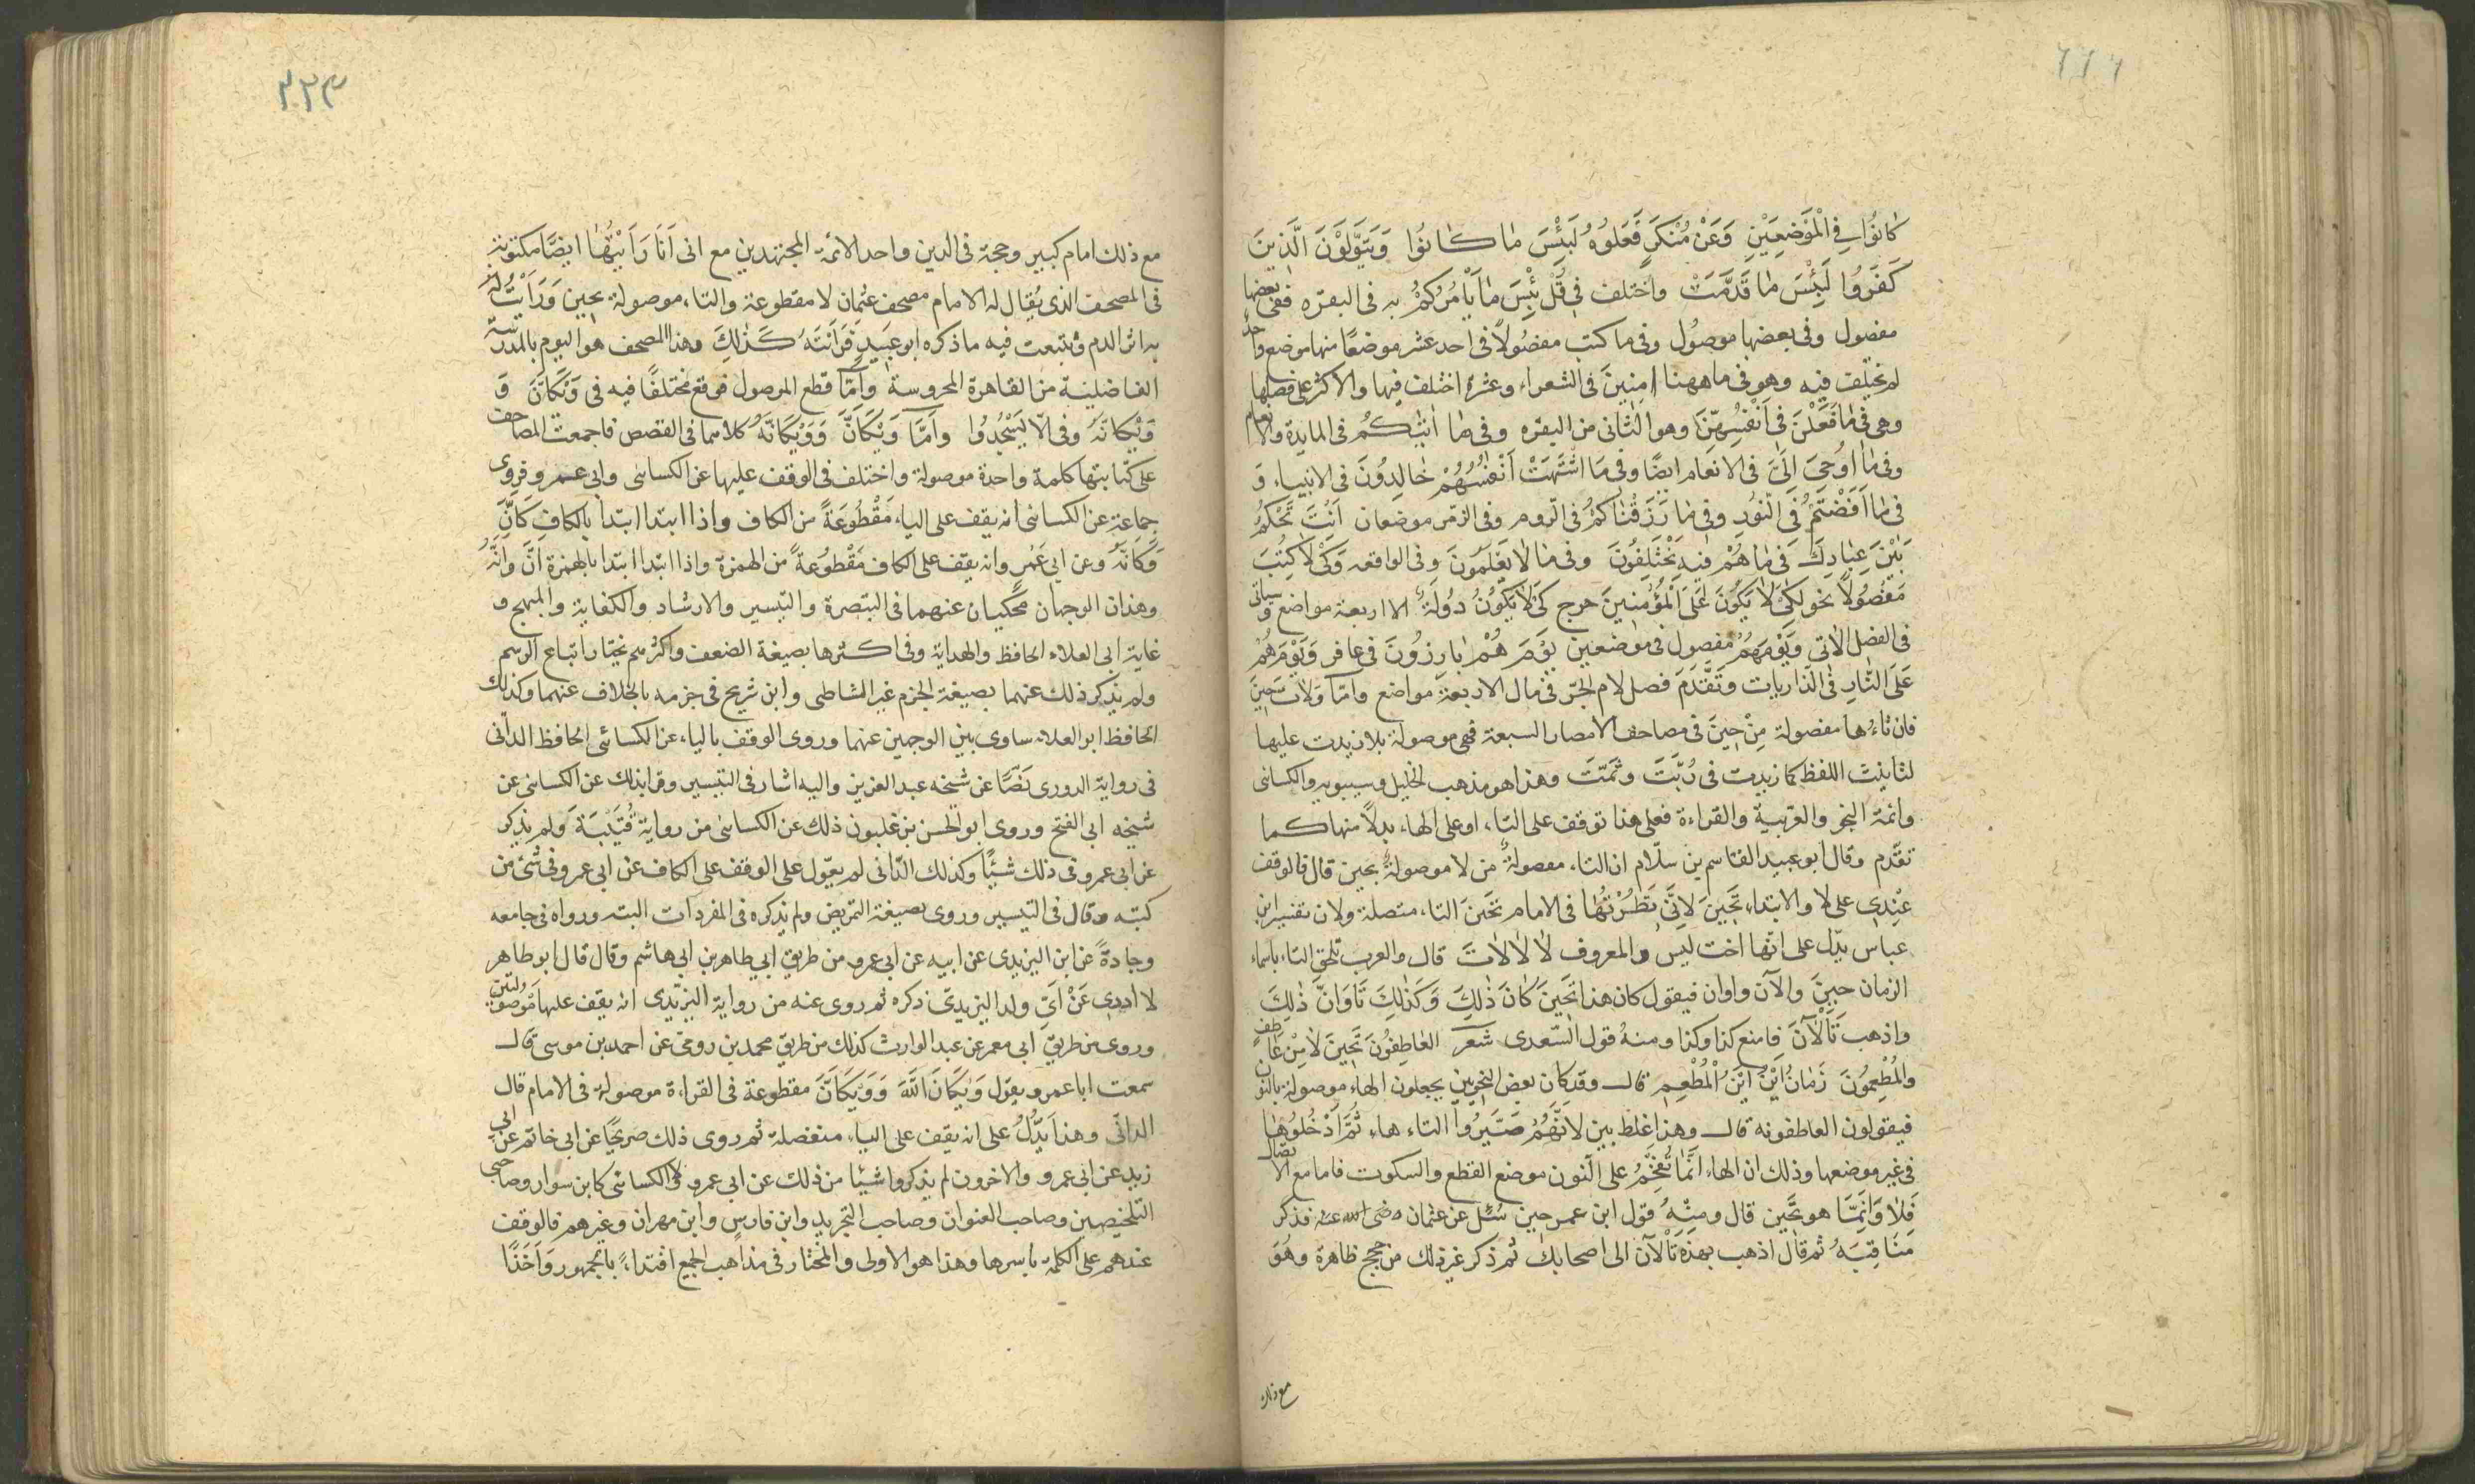 كانوا في الموضعين وعن منكر فعلوه لبئس ما كانوا ويتولون الذين
كفروا لبئس ما قدمت واختلف في قل بئس ما يأمركم به في البقره ففي بعضها
مفصول وفي بعضها موصول وفي ما كتب مفصولا في احد عشر موضعا منها موضع واحد
لم يختلف فيه وهو في ما ههنا امنين في الشعراء وعشرة اختلف فيها والاكثر على فصلها
وهي في ما فعلن في انفسهن وهو الثاني من البقره وفي ما اتيكم في المايدة والانعام
وفي ما اوحي الي في الانعام ايضا وفي ما اشتهت انفسهم خالدون في الانبياء و
في ما افضتم في النور وفي ما رزقناكم في الروم وفي الزمر موضعان انت تحكم
بين عبادك في ما هم فيه يختلفون وفي ما لا يعلمون وفي الواقعه وكي لا كتب
مفصولا نحو لكي لا يكون على المؤمنين حرج كي لا يكون دولة الا اربعة مواضع وسياتى
في الفصل الاتي ويومهم مفصول في موضعين يوم هم بارزون في غافر ويوم هم
على النار في الذاريات وتقدم فصل لام الجر في مال الاربعة مواضع واما ولات حين
فان تاءها مفصولة من حين في مصاحف الامصار السبعة فهي موصولة بلا زيدت عليها
لتانيث اللفظ كما زيدت في ربت وثمت وهذا هو مذهب الخليل وسيبويه والكسائى
وائمة النحو والعربية والقراءة فعلى هذا توقف على التاء او على الهاء بدلا منها كما
تقدم وقال ابو عبيد القاسم بن سلام ان التاء مفصولة من لا موصولة بحين قال فالوقف
عندي على لا والابتداء تحين لاني نظرتها في الامام تحين التاء متصلة ولان تفسير ابن
عباس يدل على انها اخت ليس والمعروف لا لا لات قال والعرب تلحق التاء باسماء
الزمان حين والآن واوان فيقول كان هذا تحين كان ذلك وكذلك تاوان ذلك
واذهب تالآن فاصنع كذا وكذا ومنه قول السعدى شعر العاطفون تحين لا من عاطف
والمطعمون زمان اين اين المطعم قال وقد كان بعض النحويين يجعلون الهاء موصولة بالنون
فيقولون العاطفونه قال وهذا غلط بين لانهم صيروا التاء هاء ثم ادخلوها
في غير موضعها وذلك ان الهاء انما تقحم على النون موضع القطع والسكوت فاما مع الاتصال
فلا وانما هو تحين قال ومنه قول ابن عمر حين سئل عن عثمان رضى الله عنه فذكر
مناقبه ثم قال اذهب بهذه تالآن الى اصحابك ثم ذكر غير ذلك من حجج ظاهرة وهو
مع ذلك
٢٢٣
مع ذلك امام كبير وحجة في الدين واحد الائمة المجتهدين مع انى انا رأيتها ايضا مكتوبة
في المصحف الذى يقال له الامام مصحف عثمان لا مقطوعة والتاء موصولة بحين ورأيت
به اثر الدم وتتبعت فيه ما ذكره ابو عبيد فرأيته كذلك وهذا المصحف هو اليوم بالمدرسة
الفاضلية من القاهرة المحروسة واما قطع الموصول فوقع مختلفا فيه في ويكان و
ويكانه وفي الا يسجدوا واما ويكان وويكانه كلاهما في القصص فاجمعت المصاحف
على كتابتها كلمة واحدة موصولة واختلف في الوقف عليها عن الكسائى وابي عمرو فروى
جماعة عن الكسائى انه يقف على الياء مقطوعة من الكاف واذا ابتدا ابتدا بالكاف كان
وكانه وعن ابي عمرو انه يقف على الكاف مقطوعة من الهمزة واذا ابتدا ابتدا بالهمزة ان وانه
وهذان الوجهان محكيان عنهما في التبصرة والتيسير والارشاد والكفاية والمبهج و
غاية ابى العلاء الحافظ والهداية وفي اكثرها بصيغة الضعف واكثرهم يختار اتباع الرسم
ولم يذكر ذلك عنهما بصيغة الجزم غير الشاطبى وابن شريح في جزمه بالخلاف عنهما وكذلك
الحافظ ابو العلاء ساوى بين الوجهين عنهما وروى الوقف بالياء عن الكسائى الحافظ الدانى
في رواية الدورى نصا عن شيخه عبد العزيز واليه اشار في التيسير وقرا بذلك عن الكسائى عن
شيخه ابى الفتح وروى ابو الحسن بن غلبون ذلك عن الكسائى من رواية قتيبة ولم يذكر
عن ابى عمرو فى ذلك شيئا وكذلك الدانى لم يعول على الوقف على الكاف عن ابى عمرو في شئ من
كتبه وقال في التيسير وروى بصيغة التمريض ولم يذكره في المفردات البته ورواه في جامعه
وجادة عن ابن اليزيدى عن ابيه عن ابى عمرو من طريق ابي طاهر بن ابى هاشم وقال قال ابو طاهر
لا ادرى عن اي ولد اليزيدى ذكره ثم روى عنه من رواية اليزيدى انه يقف عليهما موصولتين
وروى من طريق ابى معمر عن عبد الوارث كذلك من طريق محمد بن رومي عن احمد بن موسى قال
سمعت ابا عمرو يقول ويكان الله وويكان مقطوعة في القراءة موصولة في الامام قال
الدانى وهذا يدل على انه يقف على الياء منفصلة ثم روى ذلك صريحا عن ابى حاتم عن ابي
زيد عن ابى عمرو والاخرون لم يذكروا شيئا من ذلك عن ابى عمرو ولا الكسائى كابن سوار وصاحبى
التلخيصين وصاحب العنوان وصاحب التجريد وابن فارس وابن مهران وغيرهم فالوقف
عندهم على الكلمة باسرها وهذا هو الاولى والمختار في مذاهب الجميع اقتداء بالجمهور واخذا